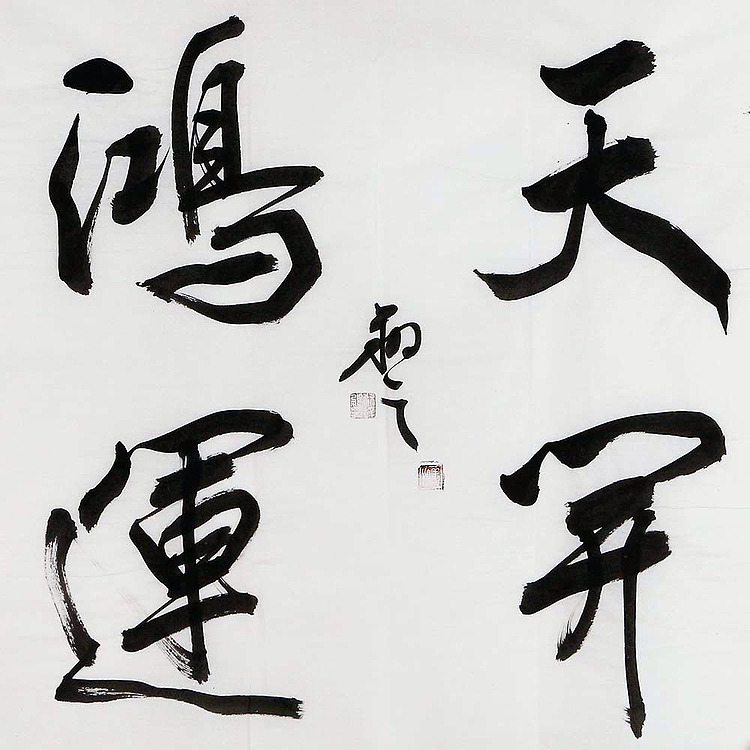 天開
鴻運